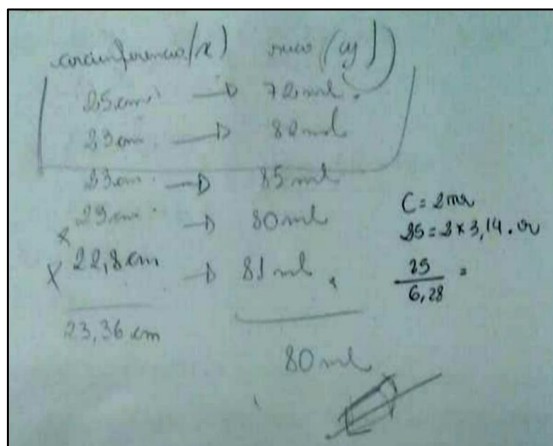 circunferencia (x) suco (y)
25cm → 72 ml.
23cm → 82 ml
23cm → 85 ml
x 23cm → 80 ml
x 22,8 cm → 81 ml
23,36 cm
80 ml
C = 2πr
25 = 2 x 3,14 . r
25
6,28 =